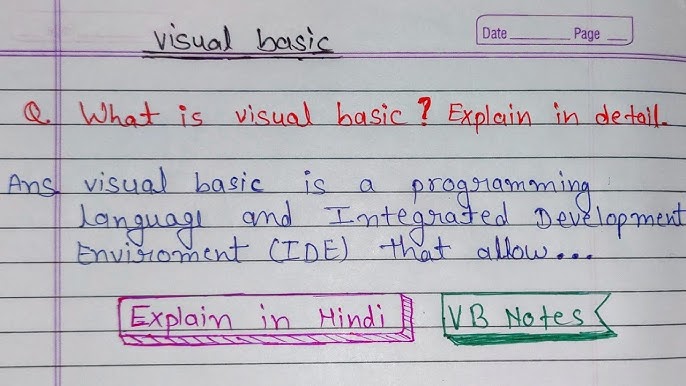 visual basic
Date ________ Page ___
Q. What is visual basic? Explain in detail.
Ans visual basic is a programming
language and Integrated Development
Enviroment (IDE) that allow...
Explain in Hindi
VB Notes